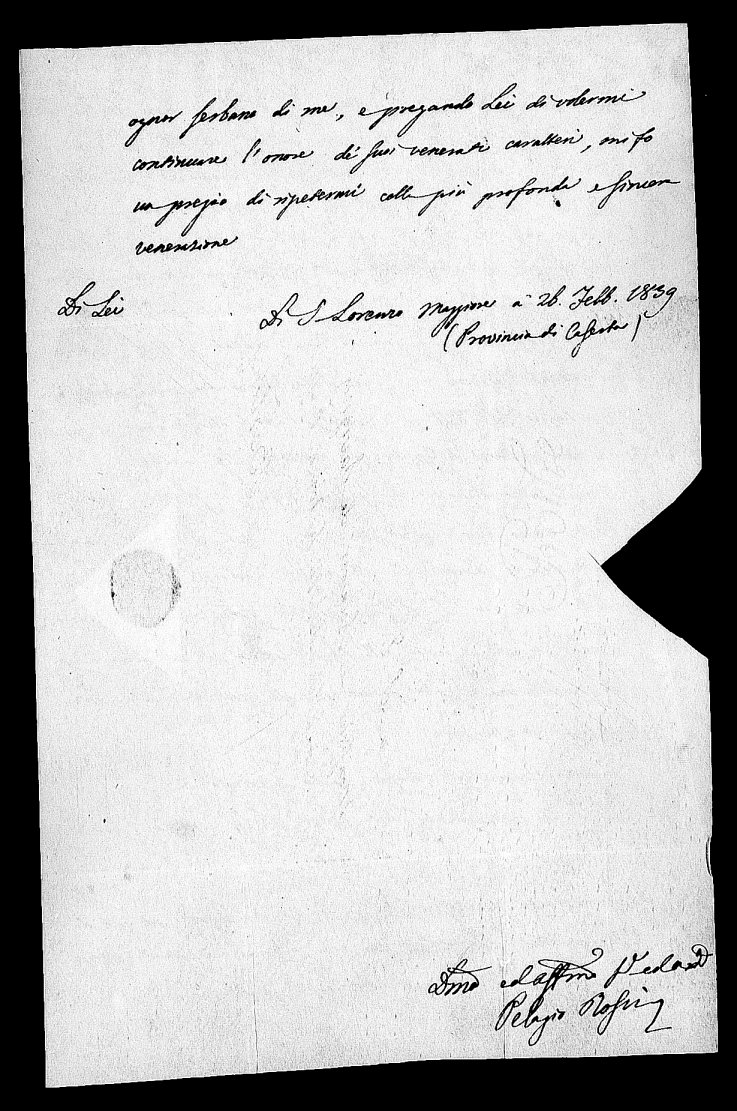 ognor serbano di me, e pregando Lei di volermi
continuare l'onore de' suoi venerati caratteri, mi fo
un pregio di ripetermi colla più profonda e sincera
venerazione
Di Lei
Di S. Lorenzo Maggiore a 26. Febb. 1839
(Provincia di Caserta)
Dmo ed
Pelagio Rossi